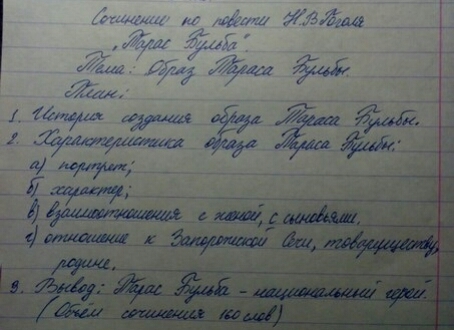 Сочинение по повести Н.В Гоголя
„Тарас Бульба".
Тема: Образ Тараса Бульбы.
План:
1. История создания образа Тараса Бульбы.
2. Характеристика образа Тараса Бульбы:
а) портрет;
б) характер;
в) взаимоотношения с женой, с сыновьями.
г) отношение к Запорожской Сечи, товариществу,
родине.
3. Вывод: Тарас Бульба - национальный герой.
(Объем сочинения 160 слов)